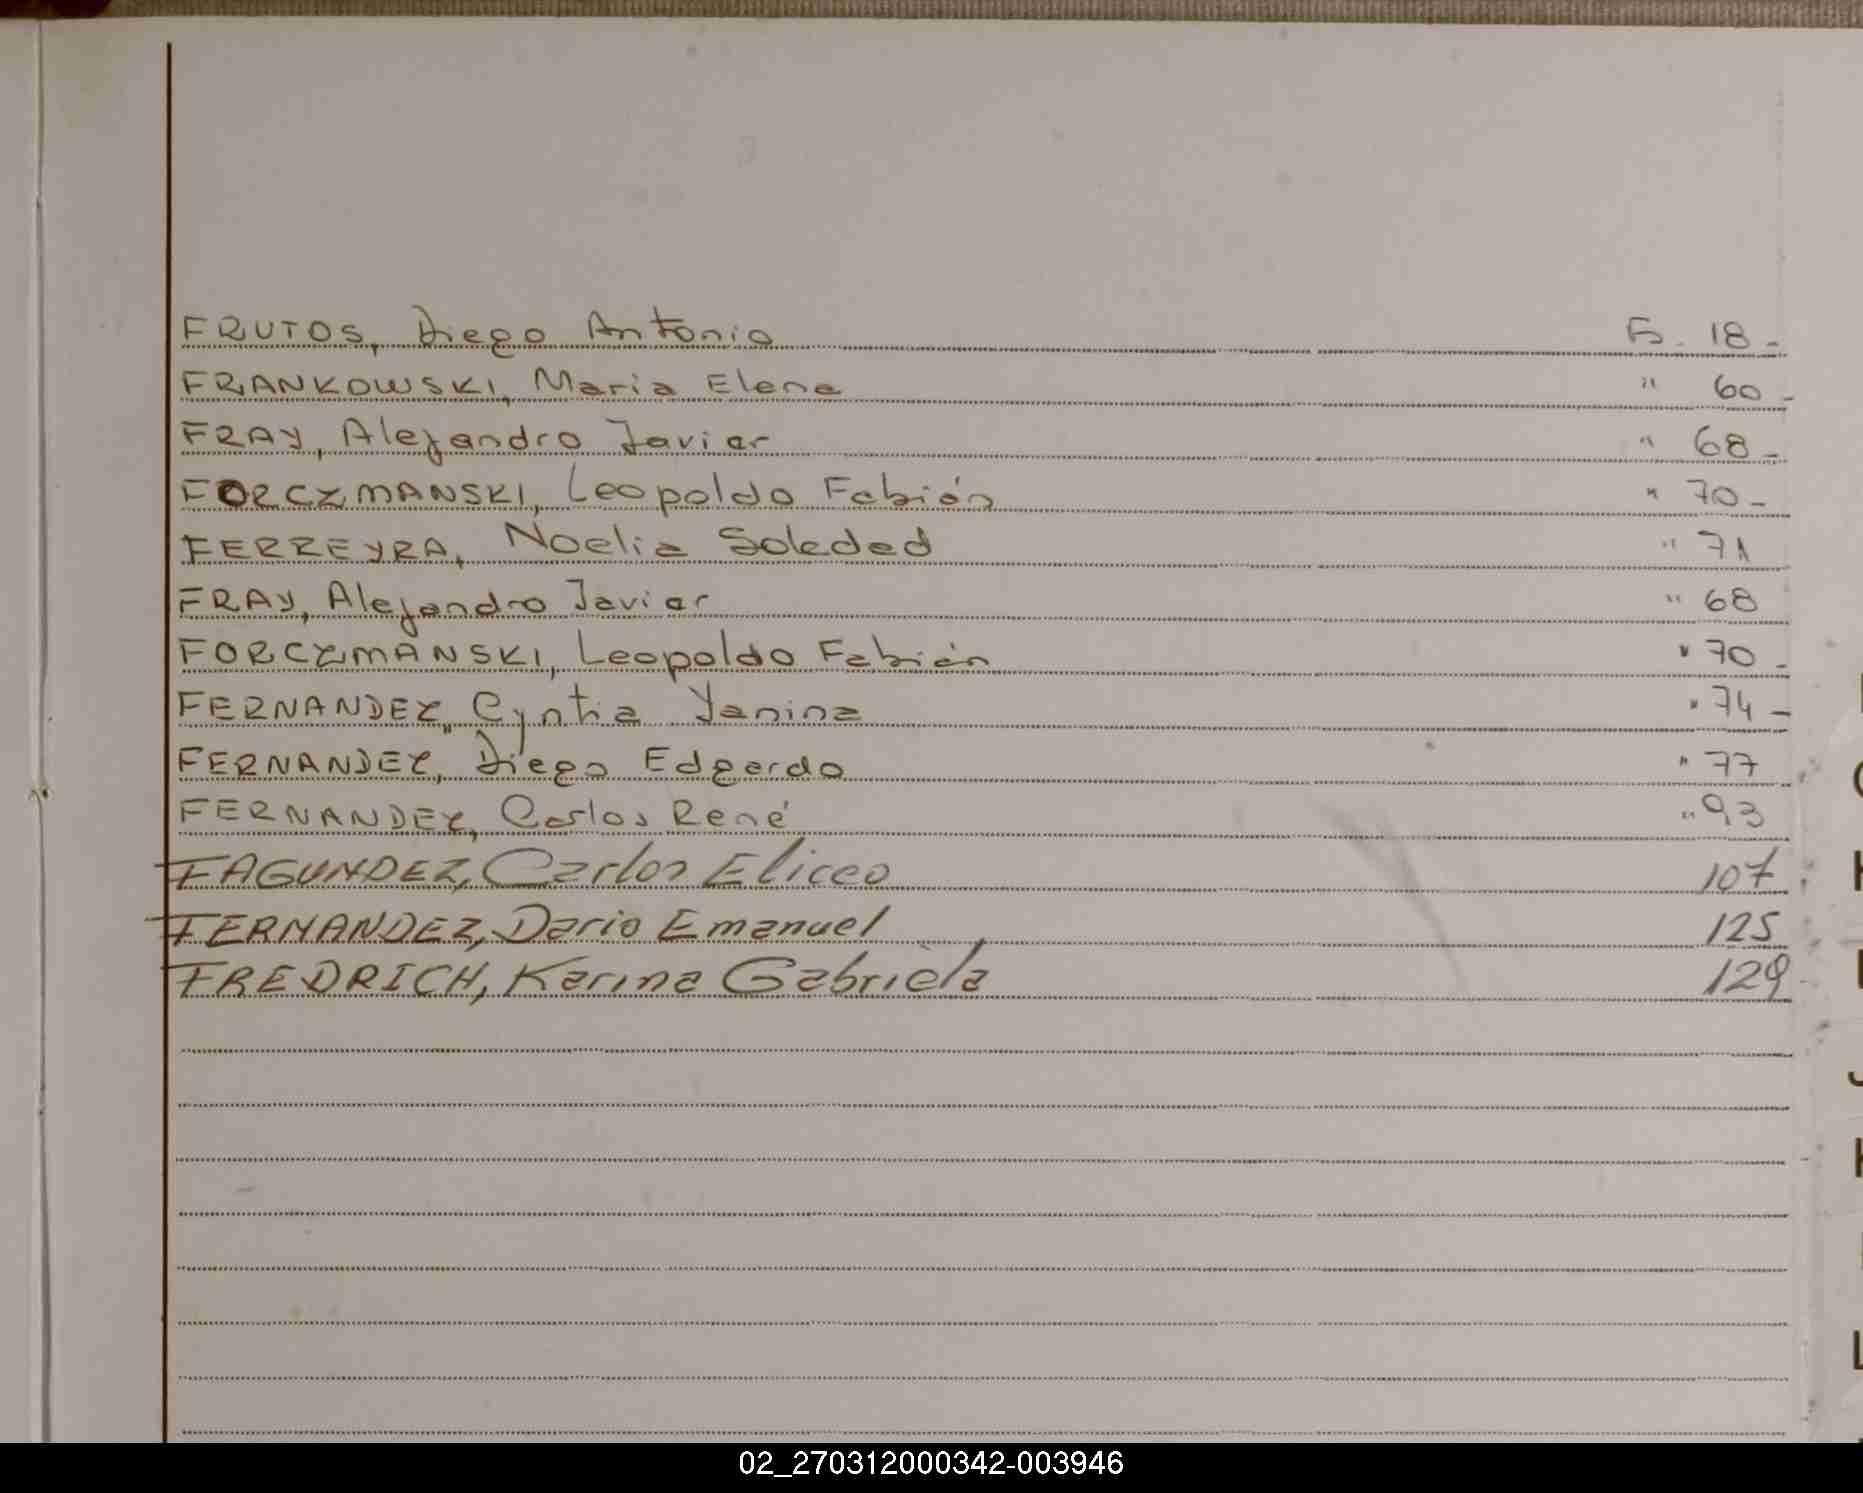 FRUTOS, Diego Antonio Fs. 18-
FRANKOWSKI, Maria Elena " 60-
FRAY, Alejandro Javier " 68-
FORCZMANSKI, Leopoldo Fabián " 70-
FERREYRA, Noelia Soledad " 71
FRAY, Alejandro Javier " 68
FORCZMANSKI, Leopoldo Fabián " 70-
FERNANDEZ, Cyntia Yanina " 74-
FERNANDEZ, Diego Edgardo " 77
FERNANDEZ, Carlos René " 93
FAGUNDEZ, Carlos Eliceo 107
FERNANDEZ, Dario Emanuel 125
FREDRICH, Karina Gabriela 129
02_270312000342-003946